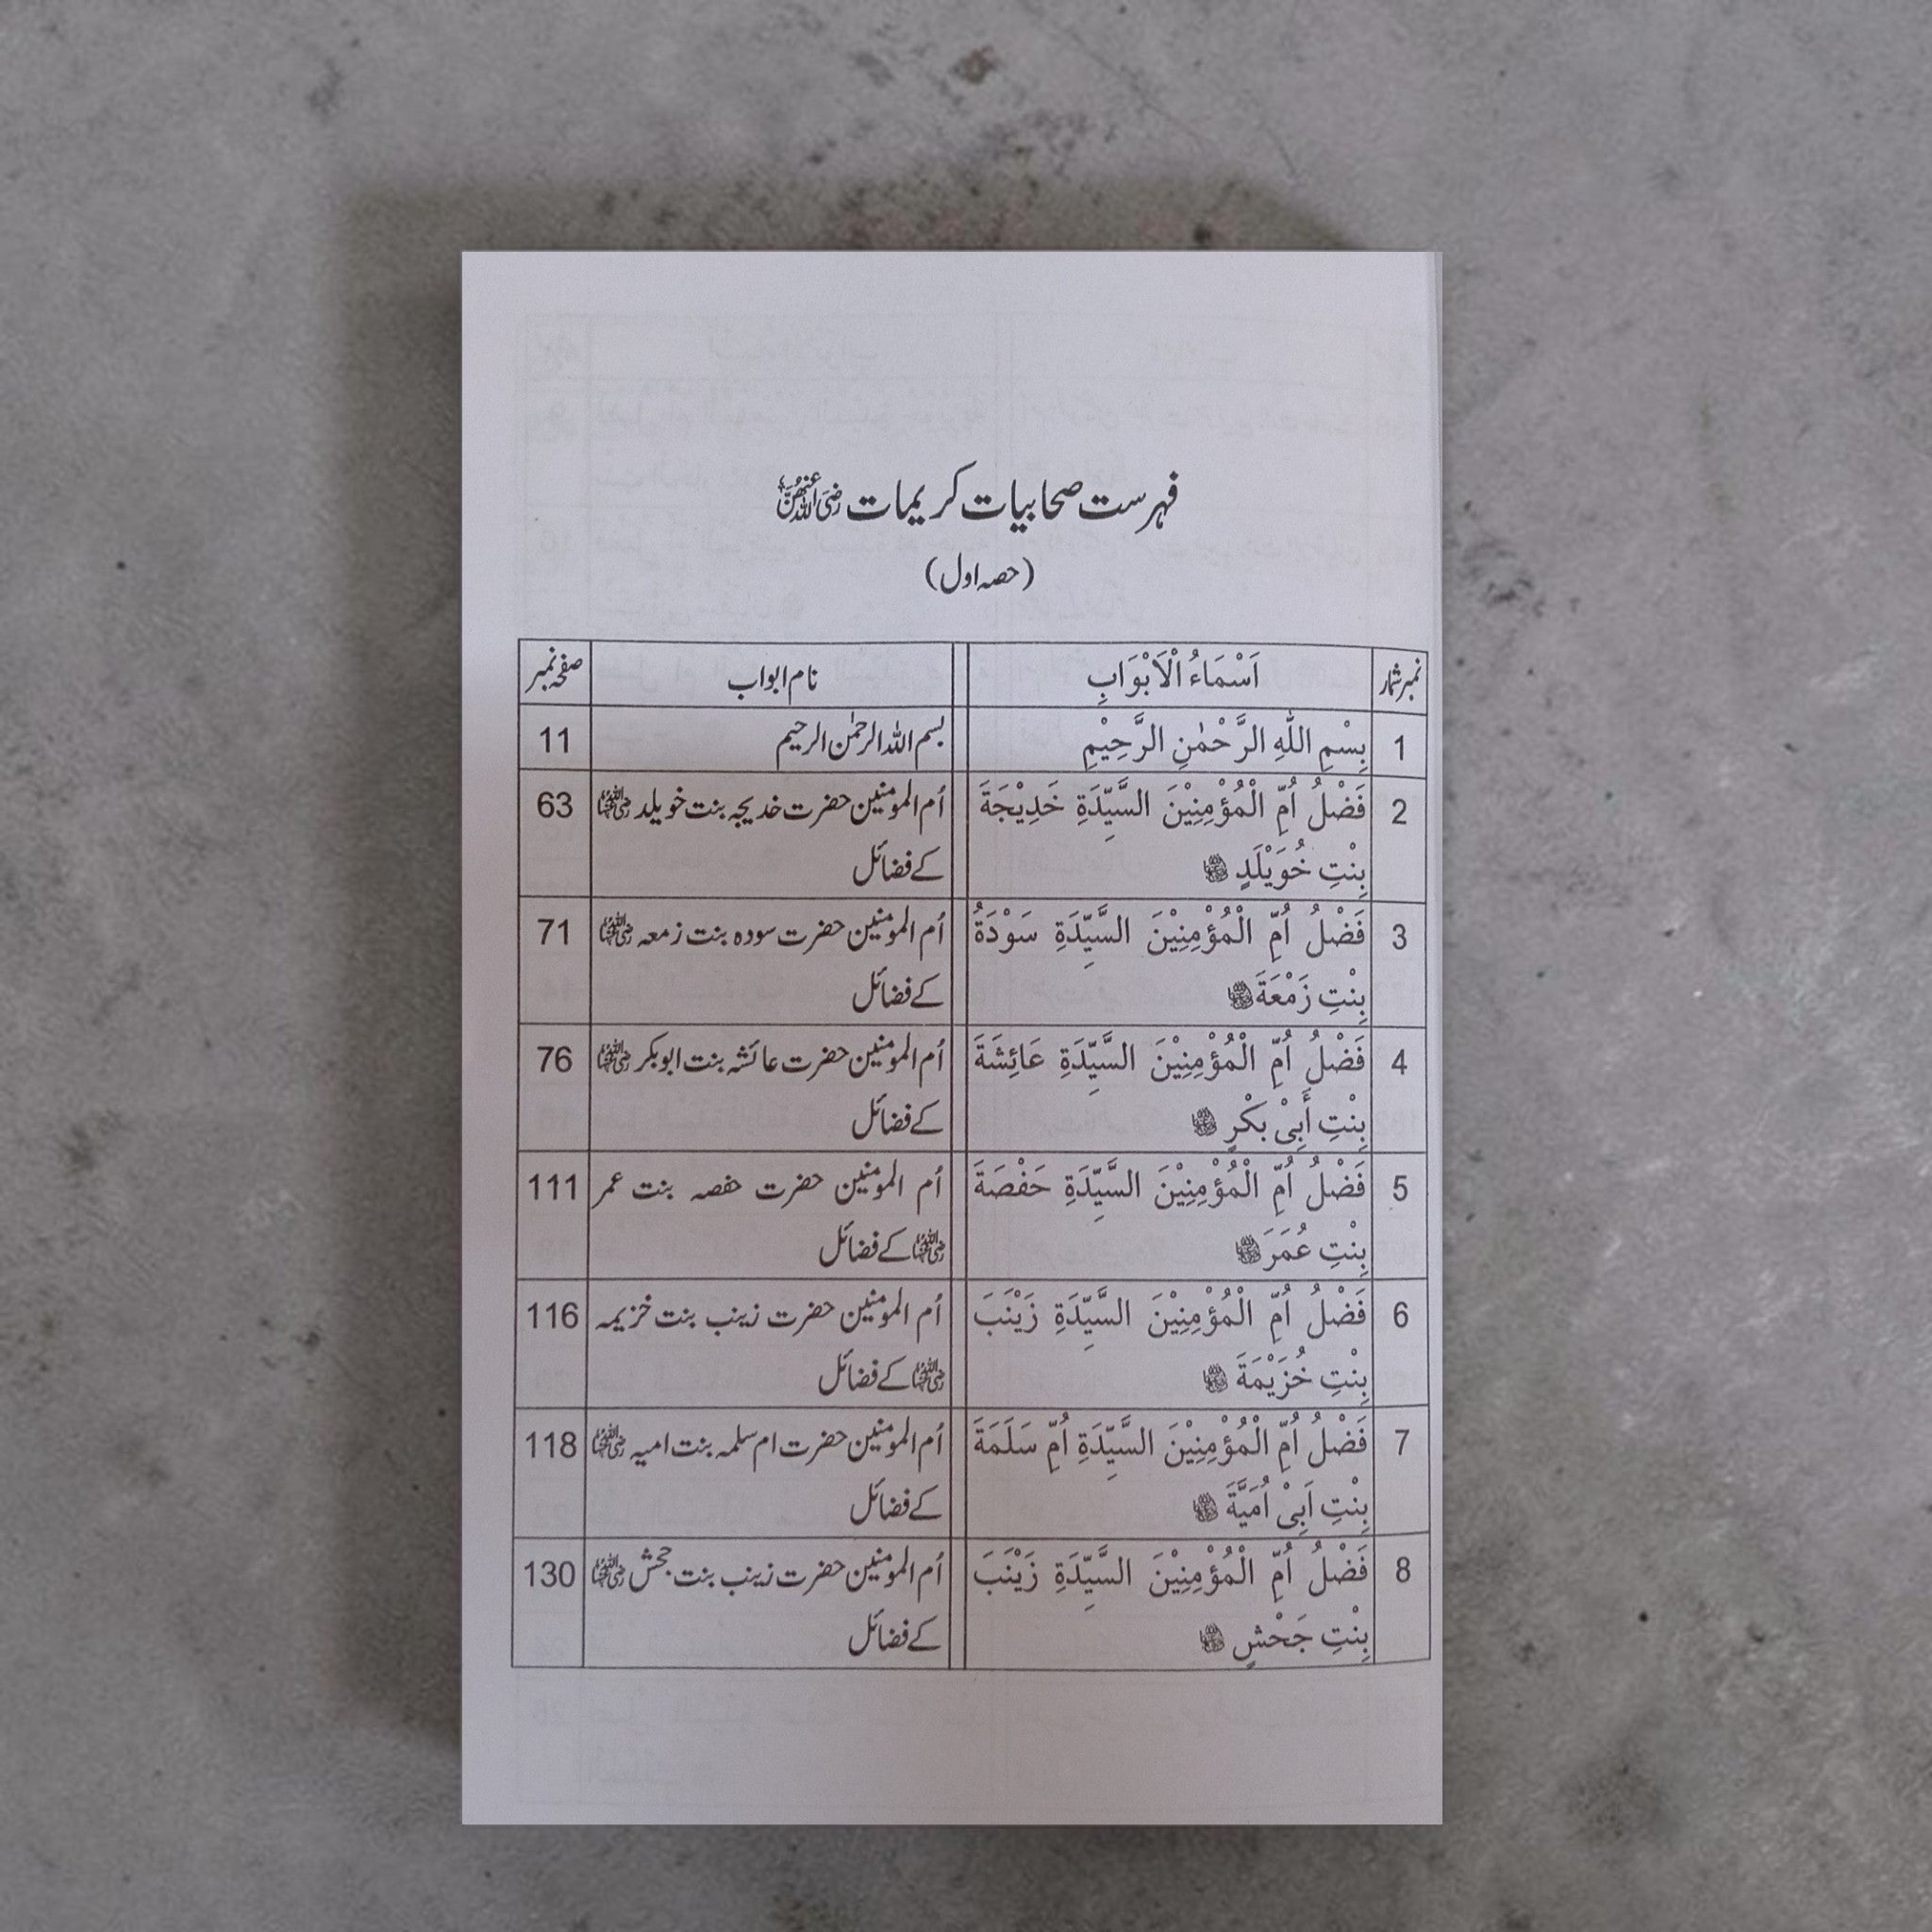 فہرست صحابیات کریمات رضی اللہ عنهن
(حصہ اول)
نمبر شمار اَسْمَاءُ الْاَبْوَابِ نام ابواب صفحہ نمبر
1 بِسْمِ اللّٰهِ الرَّحْمٰنِ الرَّحِيْمِ بسم اللہ الرحمٰن الرحیم 11
2 فَضْلُ اُمِّ الْمُؤْمِنِيْنَ السَّيِّدَةِ خَدِيْجَةَ اُم المومنین حضرت خدیجہ بنت خویلد رضی اللہ عنہا 63
بِنْتِ خُوَيْلَدٍ رضی اللہ عنہا کے فضائل
3 فَضْلُ اُمِّ الْمُؤْمِنِيْنَ السَّيِّدَةِ سَوْدَةُ اُم المومنین حضرت سودہ بنت زمعہ رضی اللہ عنہا 71
بِنْتِ زَمْعَةَ رضی اللہ عنہا کے فضائل
4 فَضْلُ اُمِّ الْمُؤْمِنِيْنَ السَّيِّدَةِ عَائِشَةَ اُم المومنین حضرت عائشہ بنت ابوبکر رضی اللہ عنہا 76
بِنْتِ أَبِىْ بَكْرٍ رضی اللہ عنہا کے فضائل
5 فَضْلُ اُمِّ الْمُؤْمِنِيْنَ السَّيِّدَةِ حَفْصَةَ اُم المومنین حضرت حفصہ بنت عمر 111
بِنْتِ عُمَرَ رضی اللہ عنہا رضی اللہ عنہا کے فضائل
6 فَضْلُ اُمِّ الْمُؤْمِنِيْنَ السَّيِّدَةِ زَيْنَبَ اُم المومنین حضرت زینب بنت خزیمہ 116
بِنْتِ خُزَيْمَةَ رضی اللہ عنہا رضی اللہ عنہا کے فضائل
7 فَضْلُ اُمِّ الْمُؤْمِنِيْنَ السَّيِّدَةِ اُمِّ سَلَمَةَ اُم المومنین حضرت ام سلمہ بنت امیہ رضی اللہ عنہا 118
بِنْتِ اَبِىْ اُمَيَّةَ رضی اللہ عنہا کے فضائل
8 فَضْلُ اُمِّ الْمُؤْمِنِيْنَ السَّيِّدَةِ زَيْنَبَ اُم المومنین حضرت زینب بنت جحش رضی اللہ عنہا 130
بِنْتِ جَحْشٍ رضی اللہ عنہا کے فضائل